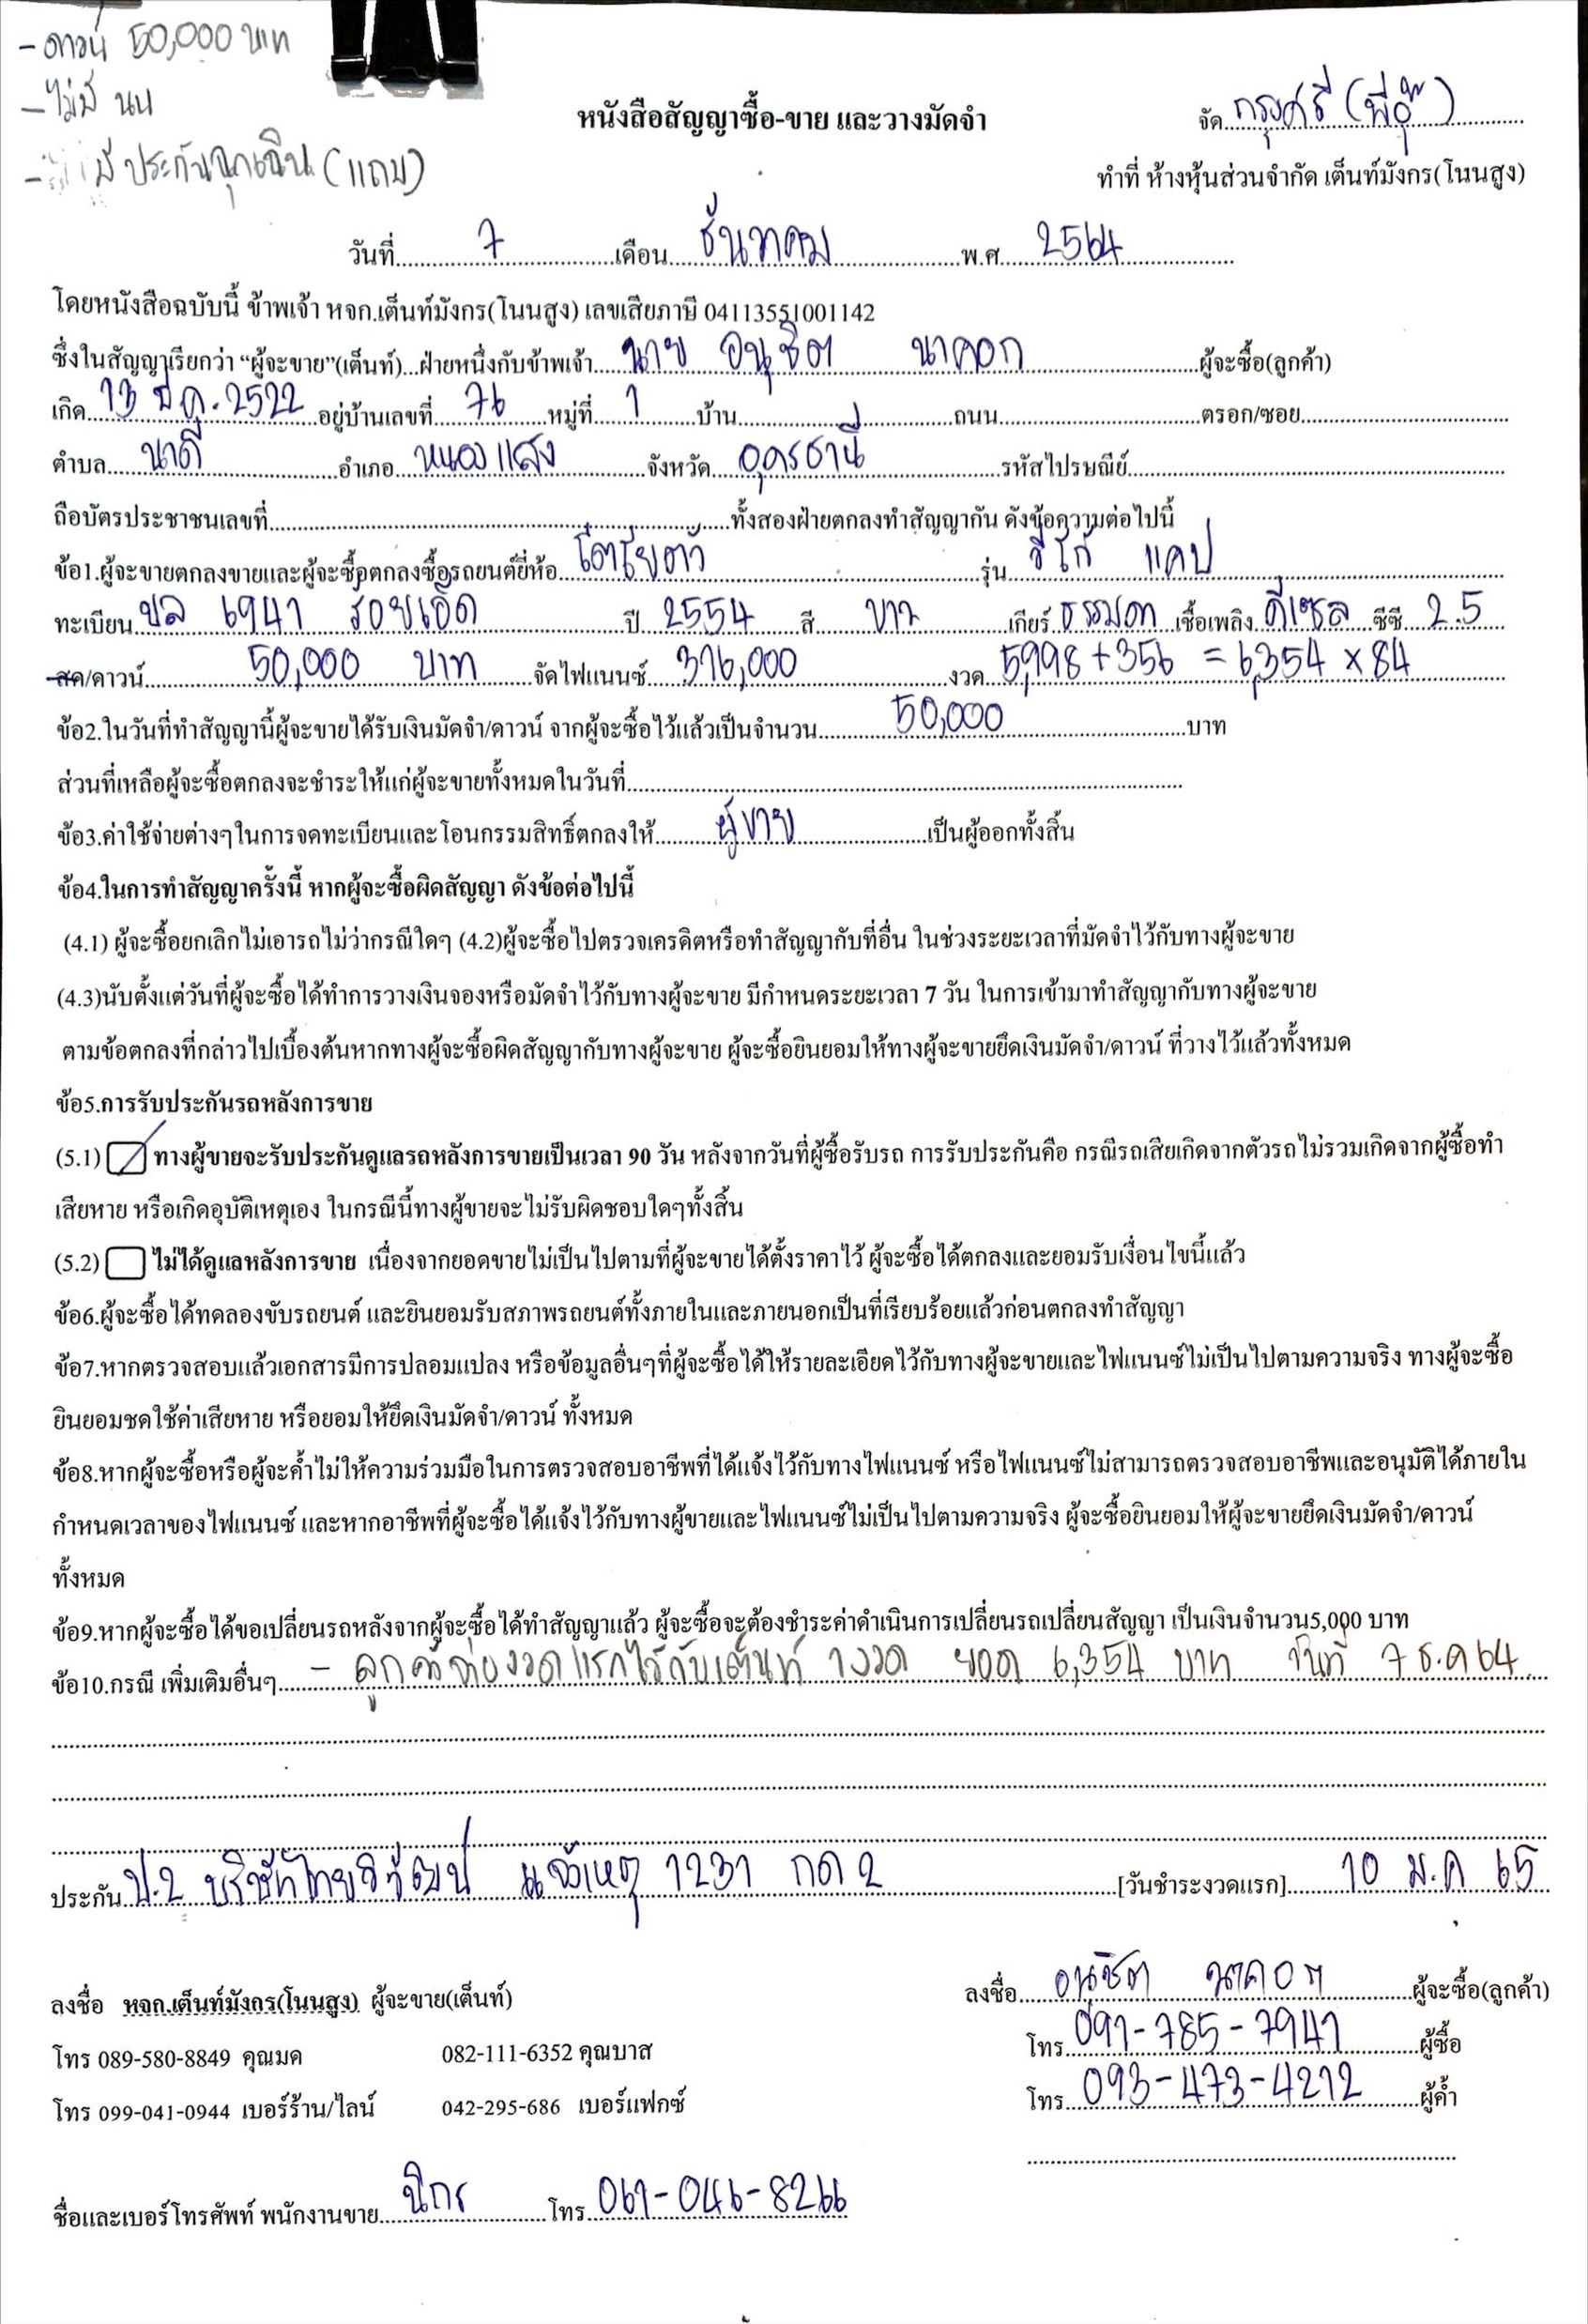 - ดาวน์ 50,000 บาท
- ไม่มี นน
- มี ประกันฉุกเฉิน (แถม)
หนังสือสัญญาซื้อ-ขาย และวางมัดจำ
จัด กรุงศรี (พี่อุ๊)
ทำที่ ห้างหุ้นส่วนจำกัด เต็นท์มังกร(โนนสูง)
วันที่ 7 เดือน ธันวาคม พ.ศ 2564
โดยหนังสือฉบับนี้ ข้าพเจ้า หจก.เต็นท์มังกร(โนนสูง) เลขเสียภาษี 04113551001142
ซึ่งในสัญญาเรียกว่า “ผู้จะขาย”(เต็นท์)...ฝ่ายหนึ่งกับข้าพเจ้า นาย อนุชิต นาคอก ผู้จะซื้อ(ลูกค้า)
เกิด 13 มี.ค.2522 อยู่บ้านเลขที่ 76 หมู่ที่ 1 บ้าน ถนน ตรอก/ซอย
ตำบล นาดี อำเภอ หนองแสง จังหวัด อุดรธานี รหัสไปรษณีย์
ถือบัตรประชาชนเลขที่ ทั้งสองฝ่ายตกลงทำสัญญากัน ดังข้อความต่อไปนี้
ข้อ1.ผู้จะขายตกลงขายและผู้จะซื้อตกลงซื้อรถยนต์ยี่ห้อ โตโยต้า รุ่น วีโก้ แคป
ทะเบียน บล 6941 ร้อยเอ็ด ปี 2554 สี ขาว เกียร์ ธรรมดา เชื้อเพลิง ดีเซล ซีซี 2.5
สด/ดาวน์ 50,000 บาท จัดไฟแนนซ์ 376,000 งวด 5,998+356 = 6,354 x 84
ข้อ2.ในวันที่ทำสัญญานี้ผู้จะขายได้รับเงินมัดจำ/ดาวน์ จากผู้จะซื้อไว้แล้วเป็นจำนวน 50,000 บาท
ส่วนที่เหลือผู้จะซื้อตกลงจะชำระให้แก่ผู้จะขายทั้งหมดในวันที่
ข้อ3.ค่าใช้จ่ายต่างๆในการจดทะเบียนและโอนกรรมสิทธิ์ตกลงให้ ผู้ขาย เป็นผู้ออกทั้งสิ้น
ข้อ4.ในการทำสัญญาครั้งนี้ หากผู้จะซื้อผิดสัญญา ดังข้อต่อไปนี้
(4.1) ผู้จะซื้อยกเลิกไม่เอารถไม่ว่ากรณีใดๆ (4.2)ผู้จะซื้อไปตรวจเครคิตหรือทำสัญญากับที่อื่น ในช่วงระยะเวลาที่มัดจำไว้กับทางผู้จะขาย
(4.3)นับตั้งแต่วันที่ผู้จะซื้อได้ทำการวางเงินจองหรือมัดจำไว้กับทางผู้จะขาย มีกำหนดระยะเวลา 7 วัน ในการเข้ามาทำสัญญากับทางผู้จะขาย
ตามข้อตกลงที่กล่าวไปเบื้องต้นหากทางผู้จะซื้อผิดสัญญากับทางผู้จะขาย ผู้จะซื้อยินยอมให้ทางผู้จะขายยึดเงินมัดจำ/ดาวน์ ที่วางไว้แล้วทั้งหมด
ข้อ5.การรับประกันรถหลังการขาย
(5.1) ทางผู้ขายจะรับประกันดูแลรถหลังการขายเป็นเวลา 90 วัน หลังจากวันที่ผู้ซื้อรับรถ การรับประกันคือ กรณีรถเสียเกิดจากตัวรถไม่รวมเกิดจากผู้ซื้อทำ
เสียหาย หรือเกิดอุบัติเหตุเอง ในกรณีนี้ทางผู้ขายจะไม่รับผิดชอบใดๆทั้งสิ้น
(5.2) ไม่ได้ดูแลหลังการขาย เนื่องจากยอดขายไม่เป็นไปตามที่ผู้จะขายได้ตั้งราคาไว้ ผู้จะซื้อได้ตกลงและยอมรับเงื่อนไขนี้แล้ว
ข้อ6.ผู้จะซื้อได้ทดลองขับรถยนต์ และยินยอมรับสภาพรถยนต์ทั้งภายในและภายนอกเป็นที่เรียบร้อยแล้วก่อนตกลงทำสัญญา
ข้อ7.หากตรวจสอบแล้วเอกสารมีการปลอมแปลง หรือข้อมูลอื่นๆที่ผู้จะซื้อได้ให้รายละเอียดไว้กับทางผู้จะขายและไฟแนนซ์ไม่เป็นไปตามความจริง ทางผู้จะซื้อ
ยินยอมชดใช้ค่าเสียหาย หรือยอมให้ยึดเงินมัดจำ/ดาวน์ ทั้งหมด
ข้อ8.หากผู้จะซื้อหรือผู้จะค้ำไม่ให้ความร่วมมือในการตรวจสอบอาชีพที่ได้แจ้งไว้กับทางไฟแนนซ์ หรือไฟแนนซ์ไม่สามารถตรวจสอบอาชีพและอนุมัติได้ภายใน
กำหนดเวลาของไฟแนนซ์ และหากอาชีพที่ผู้จะซื้อได้แจ้งไว้กับทางผู้ขายและไฟแนนซ์ไม่เป็นไปตามความจริง ผู้จะซื้อยินยอมให้ผู้จะขายยึดเงินมัดจำ/ดาวน์
ทั้งหมด
ข้อ9.หากผู้จะซื้อได้ขอเปลี่ยนรถหลังจากผู้จะซื้อได้ทำสัญญาแล้ว ผู้จะซื้อจะต้องชำระค่าดำเนินการเปลี่ยนรถเปลี่ยนสัญญา เป็นเงินจำนวน5,000 บาท
ข้อ10.กรณี เพิ่มเติมอื่นๆ - ลูกค้าจ่ายงวดแรกไว้กับเต็นท์ 1งวด ยอด 6,354 บาท วันที่ 7 ธ.ค 64
ประกัน ป.2 บริษัทไทยวิวัฒน์ แจ้งเหตุ 1231 กด 2 [วันชำระงวดแรก] 10 ม.ค 65
ลงชื่อ หจก.เต็นท์มังกร(โนนสูง) ผู้จะขาย(เต็นท์)
ลงชื่อ อนุชิต นาคอก ผู้จะซื้อ(ลูกค้า)
โทร 089-580-8849 คุณมด 082-111-6352 คุณบาส
โทร 091-785-7941 ผู้ซื้อ
โทร 099-041-0944 เบอร์ร้าน/ไลน์ 042-295-686 เบอร์แฟกซ์
โทร 093-473-4212 ผู้ค้ำ
ชื่อและเบอร์โทรศัพท์ พนักงานขาย นิกร โทร 061-046-8266